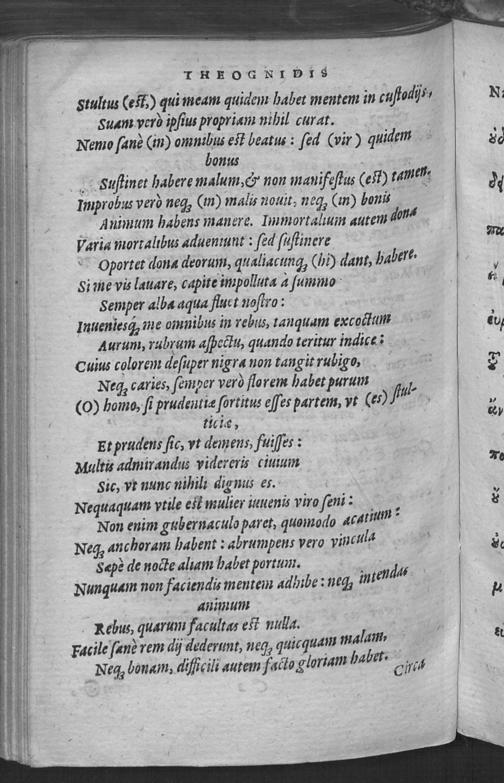 THEOGNIDIS
Stultus (est,) qui meam quidem habet mentem in custodijs,
Suam verò ipsius propriam nihil curat.
Nemo sanè (in) omnibus est beatus : sed (vir) quidem
bonus
Sustinet habere malum, & non manifestus (est) tamen.
Improbus verò neqꝫ (in) malis nouit, neqꝫ (in) bonis
Animum habens manere. Immortalium autem dona
Varia mortalibus adueniunt : sed sustinere
Oportet dona deorum, qualiacunqꝫ (hi) dant, habere.
Si me vis lauare, capite impolluta à summo
Semper alba aqua fluet nostro :
Inueniesq́ꝫ me omnibus in rebus, tanquam excoctum
Aurum, rubrum aspectu, quando teritur indice :
Cuius colorem desuper nigra non tangit rubigo,
Neqꝫ caries, semper verò florem habet purum
(O) homo, si prudentiæ sortitus esses partem, vt (es) stul-
ticiæ,
Et prudens sic, vt demens, fuisses :
Multis admirandus videreris ciuium
Sic, vt nunc nihili dignus es.
Nequaquam vtile est mulier iuuenis viro seni :
Non enim gubernaculo paret, quomodo acatium :
Neqꝫ anchoram habent : abrumpens vero vincula
Sæpè de nocte aliam habet portum.
Nunquam non faciendis mentem adhibe : neqꝫ intendas
animum
Rebus, quarum facultas est nulla.
Facile sanè rem dij dederunt, neqꝫ quicquam malam,
Neqꝫ bonam, difficili autem facto gloriam habet.
Circa